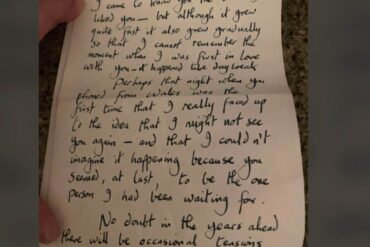 I came to know you the
liked you — but although it grew
quite fast it also grew gradually
so that I cannot remember the
moment when I was first in love
with you it happened like
Perhaps that night when you
phoned from Wales was the
first time that I really faced up
to the idea that I might not see
you again — and that I couldn't
imagine it happening because you
seemed, at last, to be the one
person I had been waiting for.
No doubt in the years ahead
there will be occasional tensions